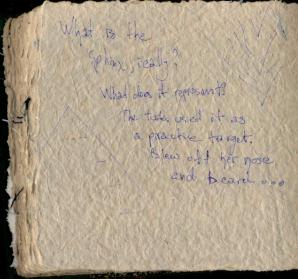 What is the
Sphinx, really?
What does it represent?
The turks used it as
a practice target.
Blew off her nose
and beard...